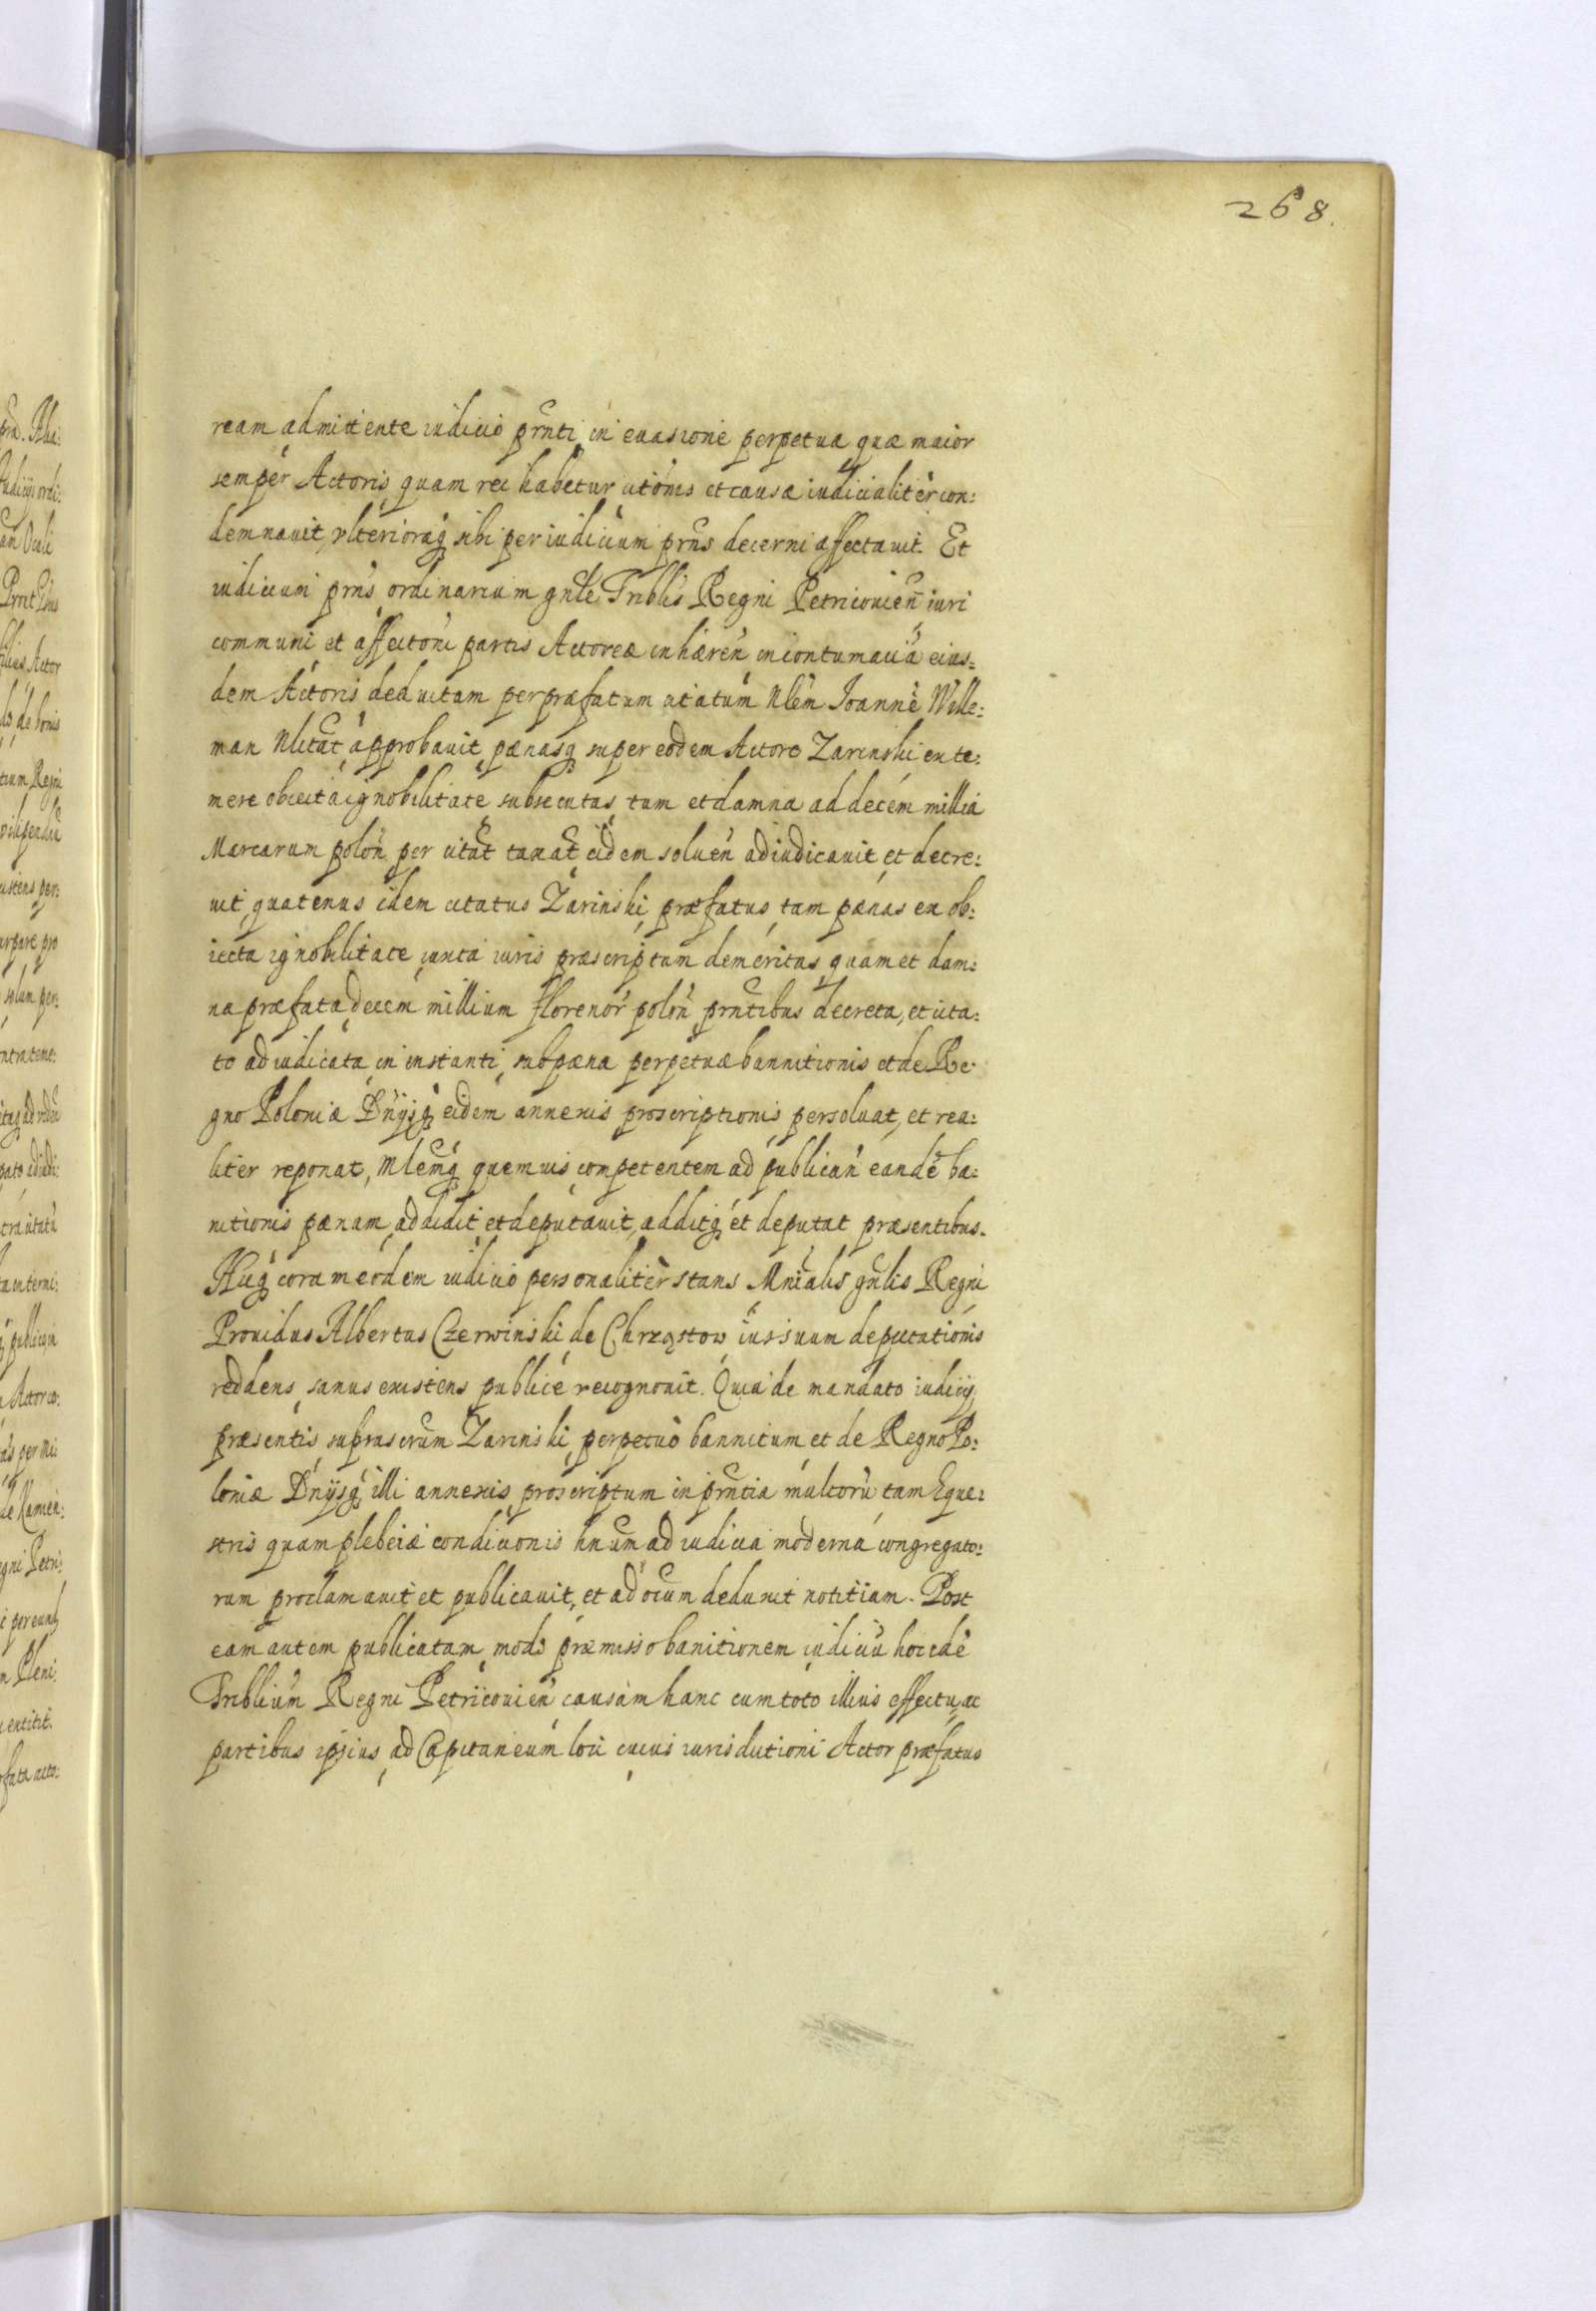 268.
ream admittente iudicio prnti in euasione perpetua quæ maior
semper Actoris quam rei habetur citonis et causæ iudicialiter con:
demnauit, vlterioraq sibi per iudicium prns decerni affectauit. Et
iudicium prns ordinarium gnle Triblis Regni Petricouien iuri
communi et affectoni partis Actoreæ inhæren in contumacia eius:
dem Actoris deductam per præfatum citatum Nlem Joanne Wille:
man Nlitat approbauit pænasq super eodem Actore Zarinski ex te:
mere obiecta ignobilitate subsecutas tum et damna ad decem millia
Marcarum polon per citat taxat eidem soluen adiudicauit et decre:
uit quatenus idem citatus Zarinski præfatus tam pænas ex ob:
iecta ignobilitate iuxta iuris præscriptum demeritas quam et dam:
na præfata decem millium florenor polon prntibus decreta, et cita:
to adiudicata in instanti sub pæna perpetuæ bannitionis et de Re
gno Poloniæ Dnijsq eidem annexis proscriptionis persoluat, et rea:
liter reponat, Mlemq quemuis competentem ad publican eande ba:
nitionis pænam addidit et deputauit, additq et deputat præsentibus.
Hicq coram eodem iudicio personaliter stans Mnialis gnlis Regni
Prouidus Albertus Czerwinski de Chrząstow iussuum deputationis
reddens sanus existens publice recognouit. Quia de mandato iudicij
præsentis suprascrum Zarinski perpetuo bannitum et de Regno Po:
loniæ Dnijsq illi annexis proscriptum in prntia multoru tam Eque:
stris quam plebeiæ condicionis hnum ad iudicia moderna congregato:
rum proclamauit et publicauit, et ad oium deduxit notitiam. Post
eam autem publicatam modo præmisso banitionem iudiciu hoc ede
Triblium Regni Petricouien causam hanc cum toto illius effectu, ac
partibus ipsius ad Capitaneum loci cuius iurisdictioni Actor præfatus